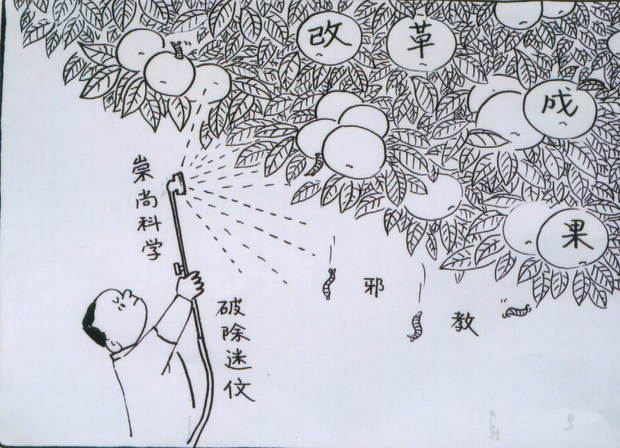 改革
成
果
崇尚科学
破除迷伩
邪教